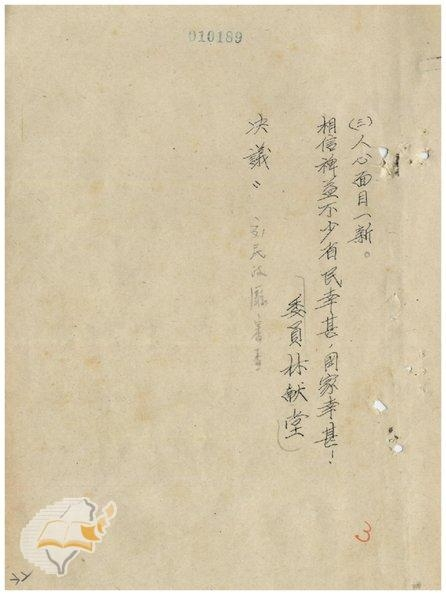 010189
(三)人心面目一新。
相信裨益不少省民幸甚,国家幸甚!
委員林献堂
决議:
民政廳審查
3